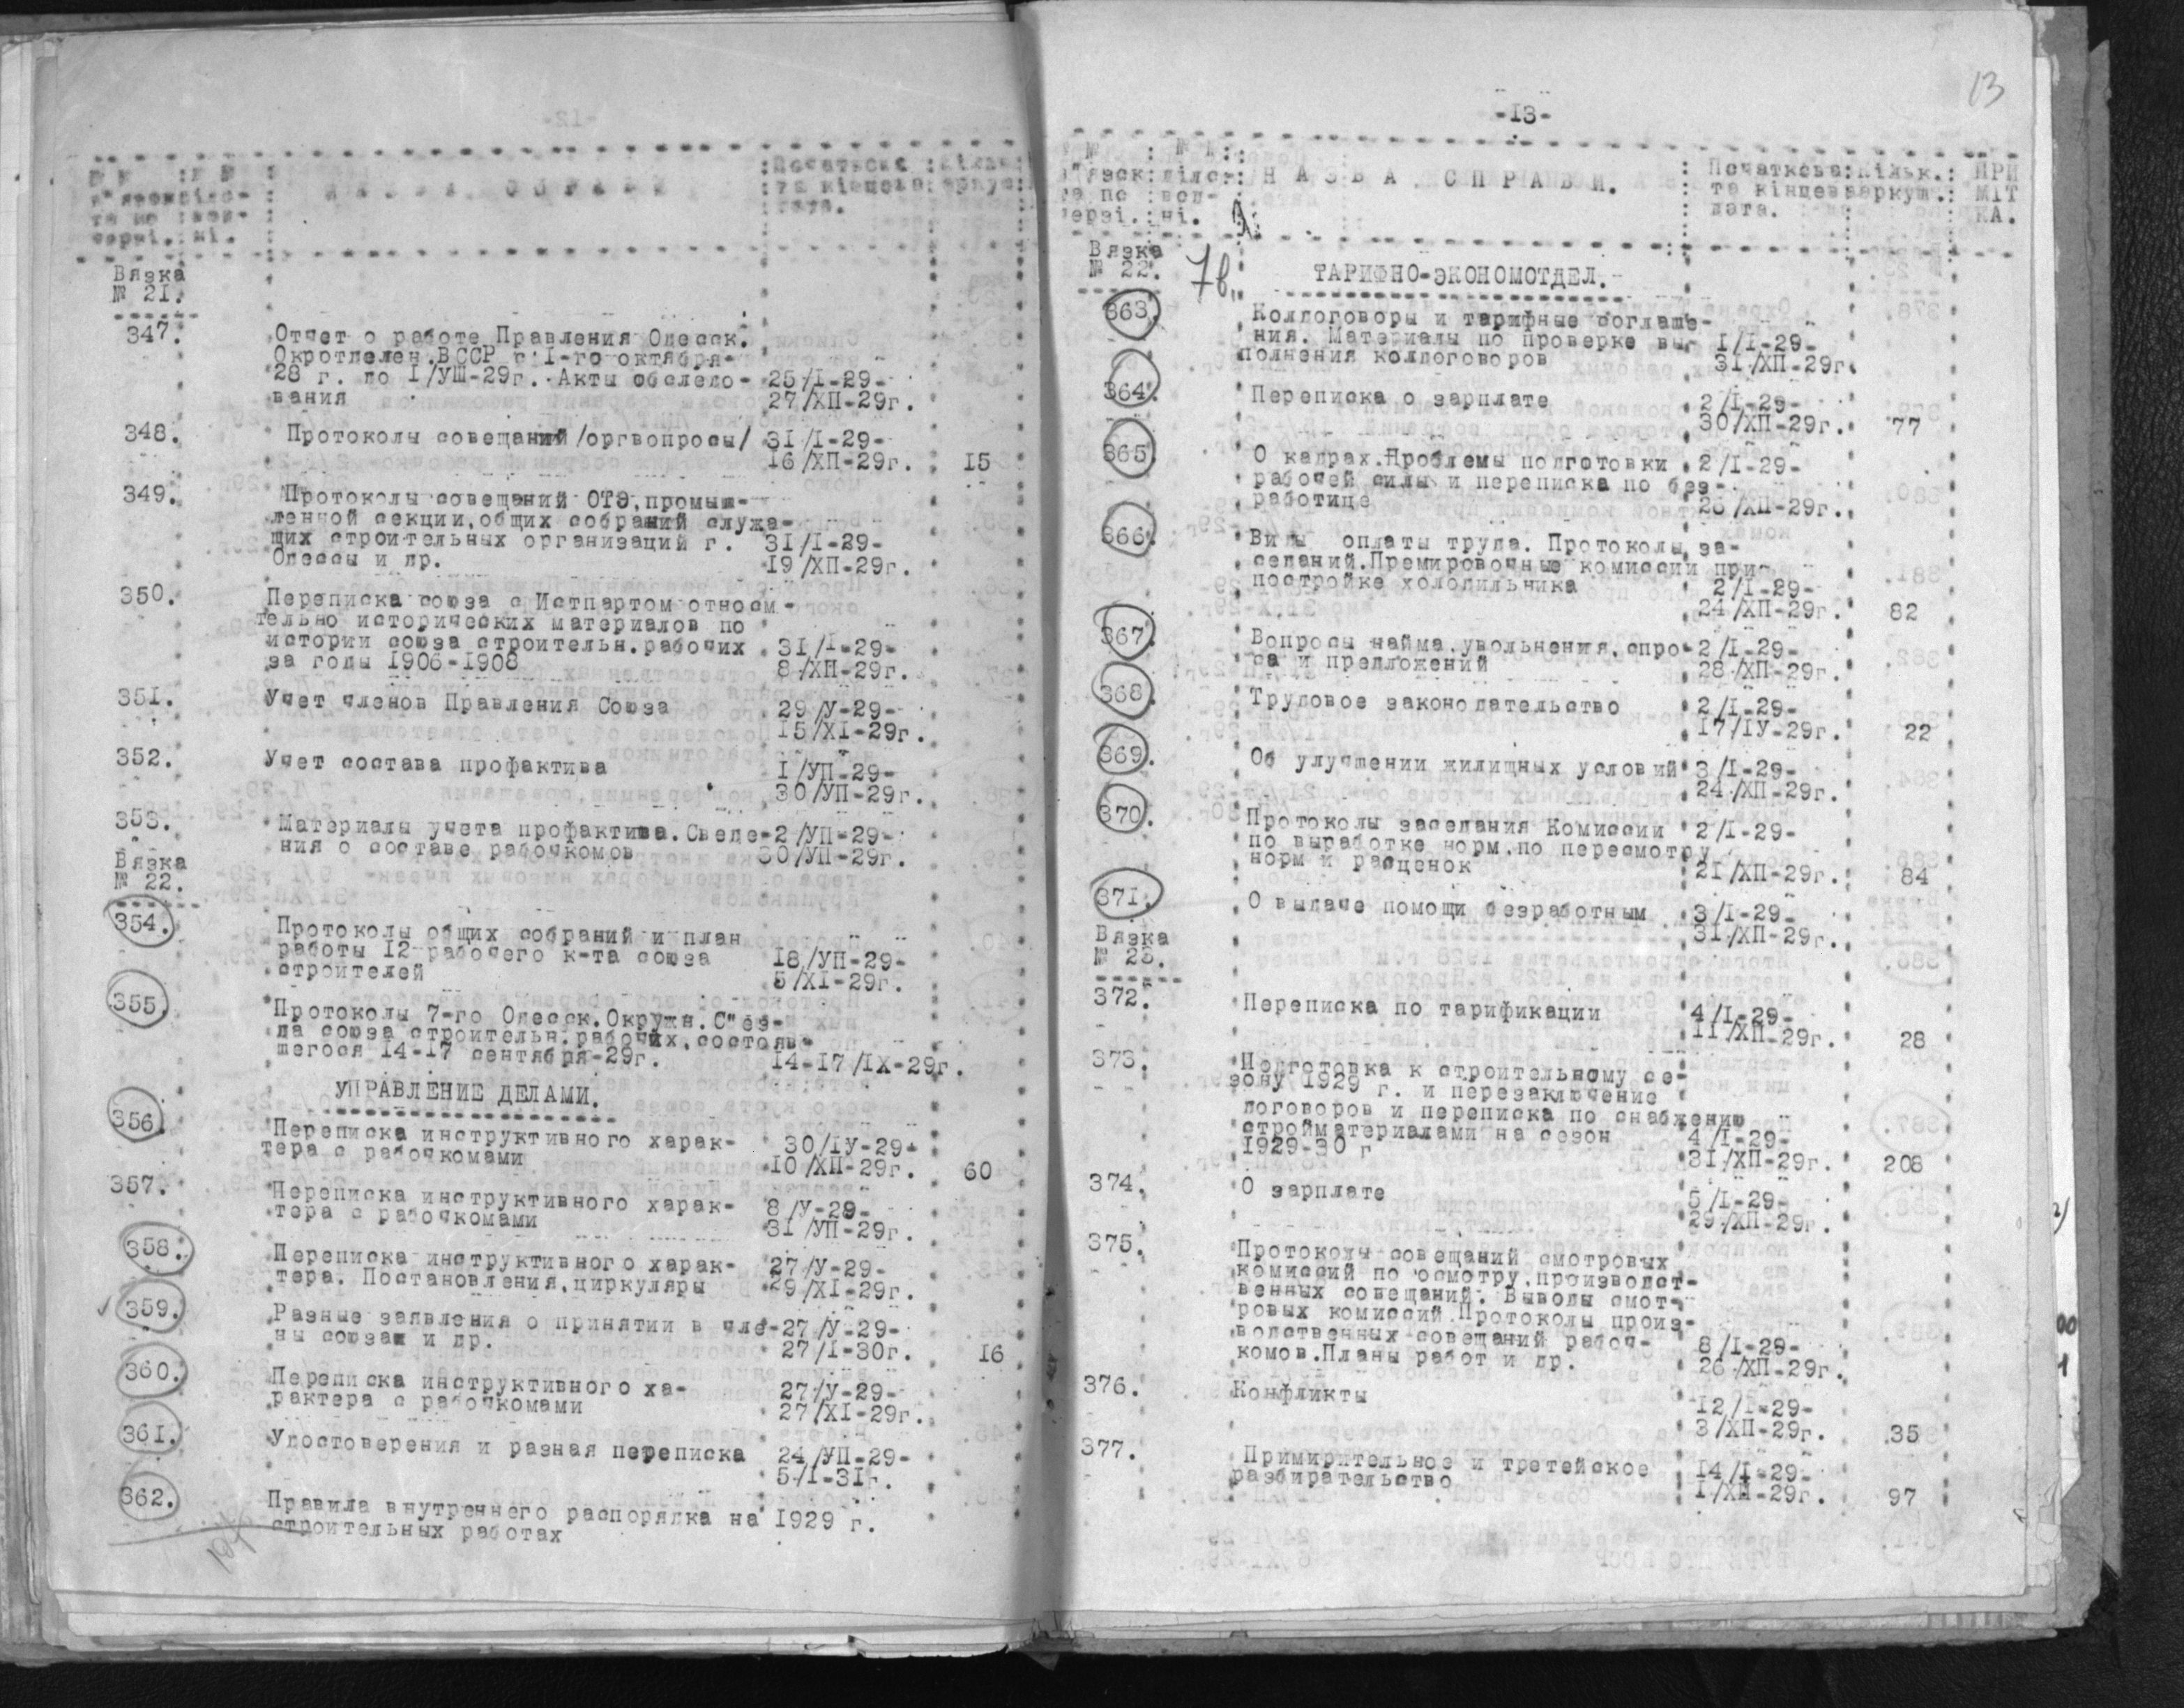 Початкова
та кінцева
дата.
НАЗВА СПРАВИ
Вязка
№ 21.
347. Отчет о работе Правления Одесск.
Окротделен.ВССР с 1-го октября-
28 г. по I/УШ-29г. Акты обследо- 25/I-29-
вания 27/ХП-29г.
348. Протоколы совещаний /оргвопросы/ 31/I-29-
16/ХП-29г. 15
349. Протоколы совещаний ОТЭ,промыш-
ленной секции,общих собраний служа-
щих строительных организаций г. 31/I-29-
Одессы и др. 19/ХП-29г.
350. Переписка союза с Истпартом относи-
тельно исторических материалов по
истории союза строительн.рабочих 31/I-29-
за годы 1906-1908 8/ХП-29г.
351. Учет членов Правления Союза 29/У-29-
15/XI-29г.
352. Учет состава профактива I/УП-29-
30/УП-29г.
353. Материалы учета профактива.Сведе- 2/УП-29-
ния о составе рабочкомов 30/УП-29г.
Вязка
№ 22.
354. Протоколы общих собраний и план
работы 12 рабочего к-та союза 18/УП-29-
строителей 5/XI-29г.
355. Протоколы 7-го Одесск.Окружн.С"ез-
да союза строительн.рабочих,состояв-
шегося 14-17 сентября-29г. 14-17/IX-29г.
УПРАВЛЕНИЕ ДЕЛАМИ.
356. Переписка инструктивного харак- 30/IУ-29-
тера с рабочкомами 10/ХП-29г. 60
357. Переписка инструктивного харак- 8/У-29-
тера с рабочкомами 31/УП-29г.
358. Переписка инструктивного харак- 27/У-29-
тера. Постановления,циркуляры 29/XI-29г.
359. Разные заявления о принятии в чле- 27/У-29-
ны союзаж и др. 27/I-30г. 16
360. Переписка инструктивного ха- 27/У-29-
рактера с рабочкомами 27/XI-29г.
361. Удостоверения и разная переписка 24/УП-29-
5/I-31г.
362. Правила внутреннего распорядка на 1929 г.
строительных работах
13
-13-
№ № № №
в"язок діло- НАЗВА СПРАВИ. Початкова Кільк. ПРИ
та по вод- та кінцев аркуш. МІТ
черзі. ні. дата. КА.
Вязка
№ 22. 7в. ТАРИФНО-ЭКОНОМОТДЕЛ.
363. Колдоговоры и тарифные соглаше-
ния. Материалы по проверке вы- 1/I-29-
полнения колдоговоров 31/ХП-29г.
364. Переписка о зарплате 2/I-29-
30/ХП-29г. 77
365. О кадрах.Проблемы подготовки 2/I-29-
рабочей силы и переписка по без-
работице 28/ХП-29г.
366. Виды оплаты труда. Протоколы за-
седаний.Премировочные комиссии при
постройке холодильника 2/I-29-
24/ХП-29г. 82
367. Вопросы найма,увольнения,спро- 2/I-29-
са и предложений 28/ХП-29г.
368. Трудовое законодательство 2/I-29-
17/IУ-29г. 22
369. Об улучшении жилищных условий 3/I-29-
24/ХП-29г.
370. Протоколы заседания Комиссии 2/I-29-
по выработке норм,по пересмотру
норм и расценок 21/ХП-29г. 84
371. О выдаче помощи безработным 3/I-29-
31/ХП-29г.
Вязка
№ 23.
372. Переписка по тарификации 4/I-29-
11/ХП-29г. 28
373. Подготовка к строительному се-
зону 1929 г. и перезаключение
договоров и переписка по снабжению
стройматериалами на сезон 4/I-29-
1929-30 г 31/ХП-29г. 208
374. О зарплате 5/I-29-
29/ХП-29г.
375. Протоколы совещаний смотровых
комиссий по осмотру,производст-
венных совещаний. Выводы смот-
ровых комиссий.Протоколы произ-
водственных совещаний рабоч- 8/I-29-
комов.Планы работ и др. 26/ХП-29г.
376. Конфликты 12/I-29-
3/ХП-29г. 35
377. Примирительное и третейское 14/I-29-
разбирательство 1/ХП-29г. 97